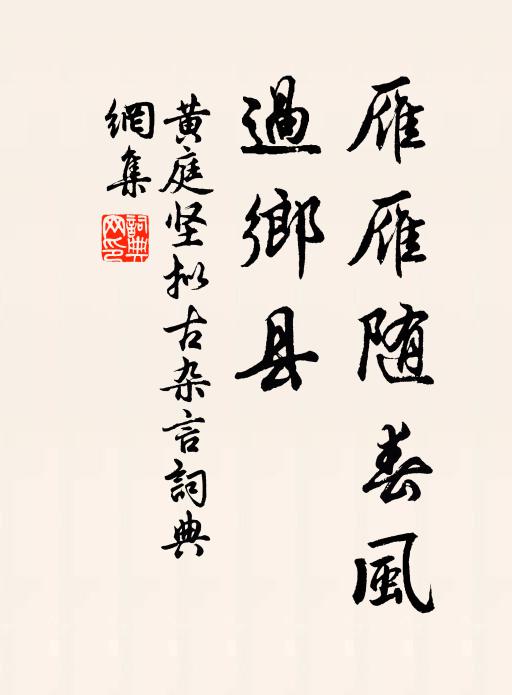 雁雁随春風
過鄉县
黄庭坚拟古杂言詞典
網集
詞典
网印